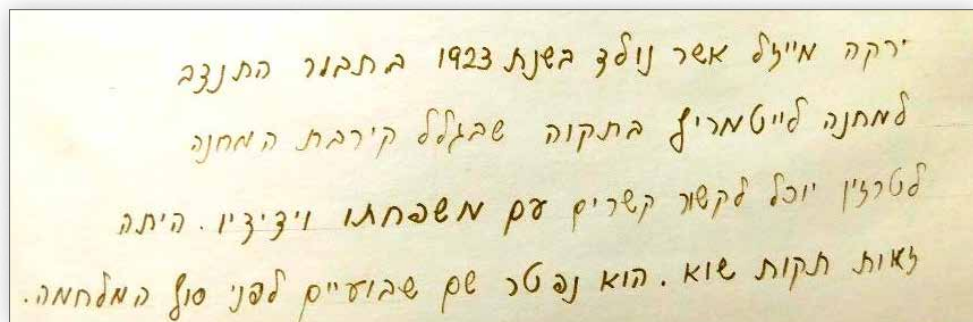 ירקה מייזל אשר נולד בשנת 1923 בתבור התנדב
למחנה לייטמריץ בתקוה שבגלל קירבת המחנה
לטרזין יוכל לקשור קשרים עם משפחתו וידידיו. היתה
זאות תקות שוא. הוא נפטר שם שבועיים לפני סוף המלחמה.